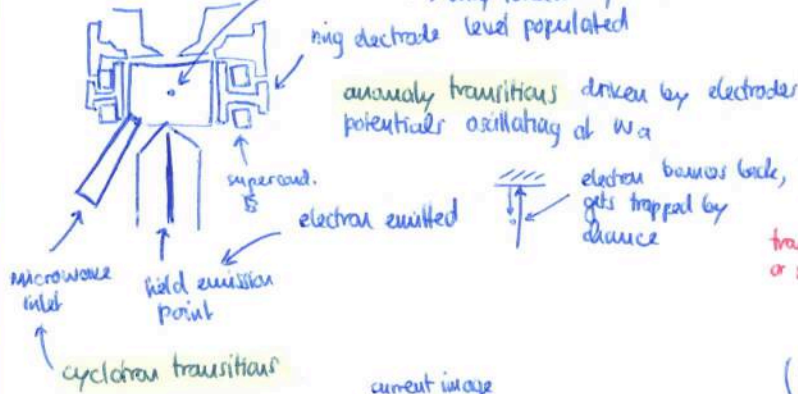 ring electrode level populated
anomaly transitions driven by electrodes
potentials oscillating at ωa
supercond.
electron emitted
electron bounces back,
gets trapped by
chance
microwave
inlet
field emission
point
cyclotron transitions
current image